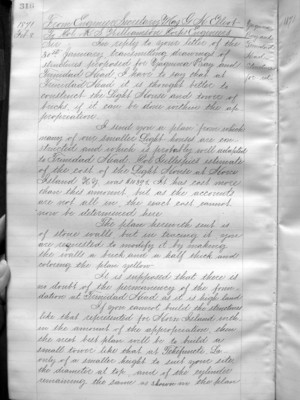 316
1871
Feb 8
From Engineer Secretary Maj. G. H. Elliot
To Col. R. S. Williamson Engineer
Yaquina
Bay and
Trinidad
Head
Sir. In reply to your letter of the
30th January, transmitting drawings of
structures proposed for Yaquina Bay and
Trinidad Head, I have to say that at
Trinidad Head it is thought better to
construct the Light House and tower of
brick, if it can be done within the ap-
propriation.
I send you a plan from which
many of our smaller Light houses are con-
structed and which is probably well adapted
to Trinidad Head. Col. Gillespie's estimate
of the cost of the Light House at Horn
Island, was It has cost more
than this amount but as the accounts
are not all in, the exact cost cannot
now be determined here.
The plan herewith sent is
of stone walls but in tracing it you
are requested to modify it by making
the walls a brick and a half thick and
coloring the plan yellow.
It is supposed that there is
no doubt of the permanency of the foun-
dation at Trinidad Head as it is high land.
If you cannot build the structure
like that represented for Horn Island with-
in the amount of the appropriation, then
the next best plan will be to build a
small tower like that at Tchefuncti La
only of a smaller height to suit your site,
the diameter at top and of the cylinder
remaining the same as shown on the plan